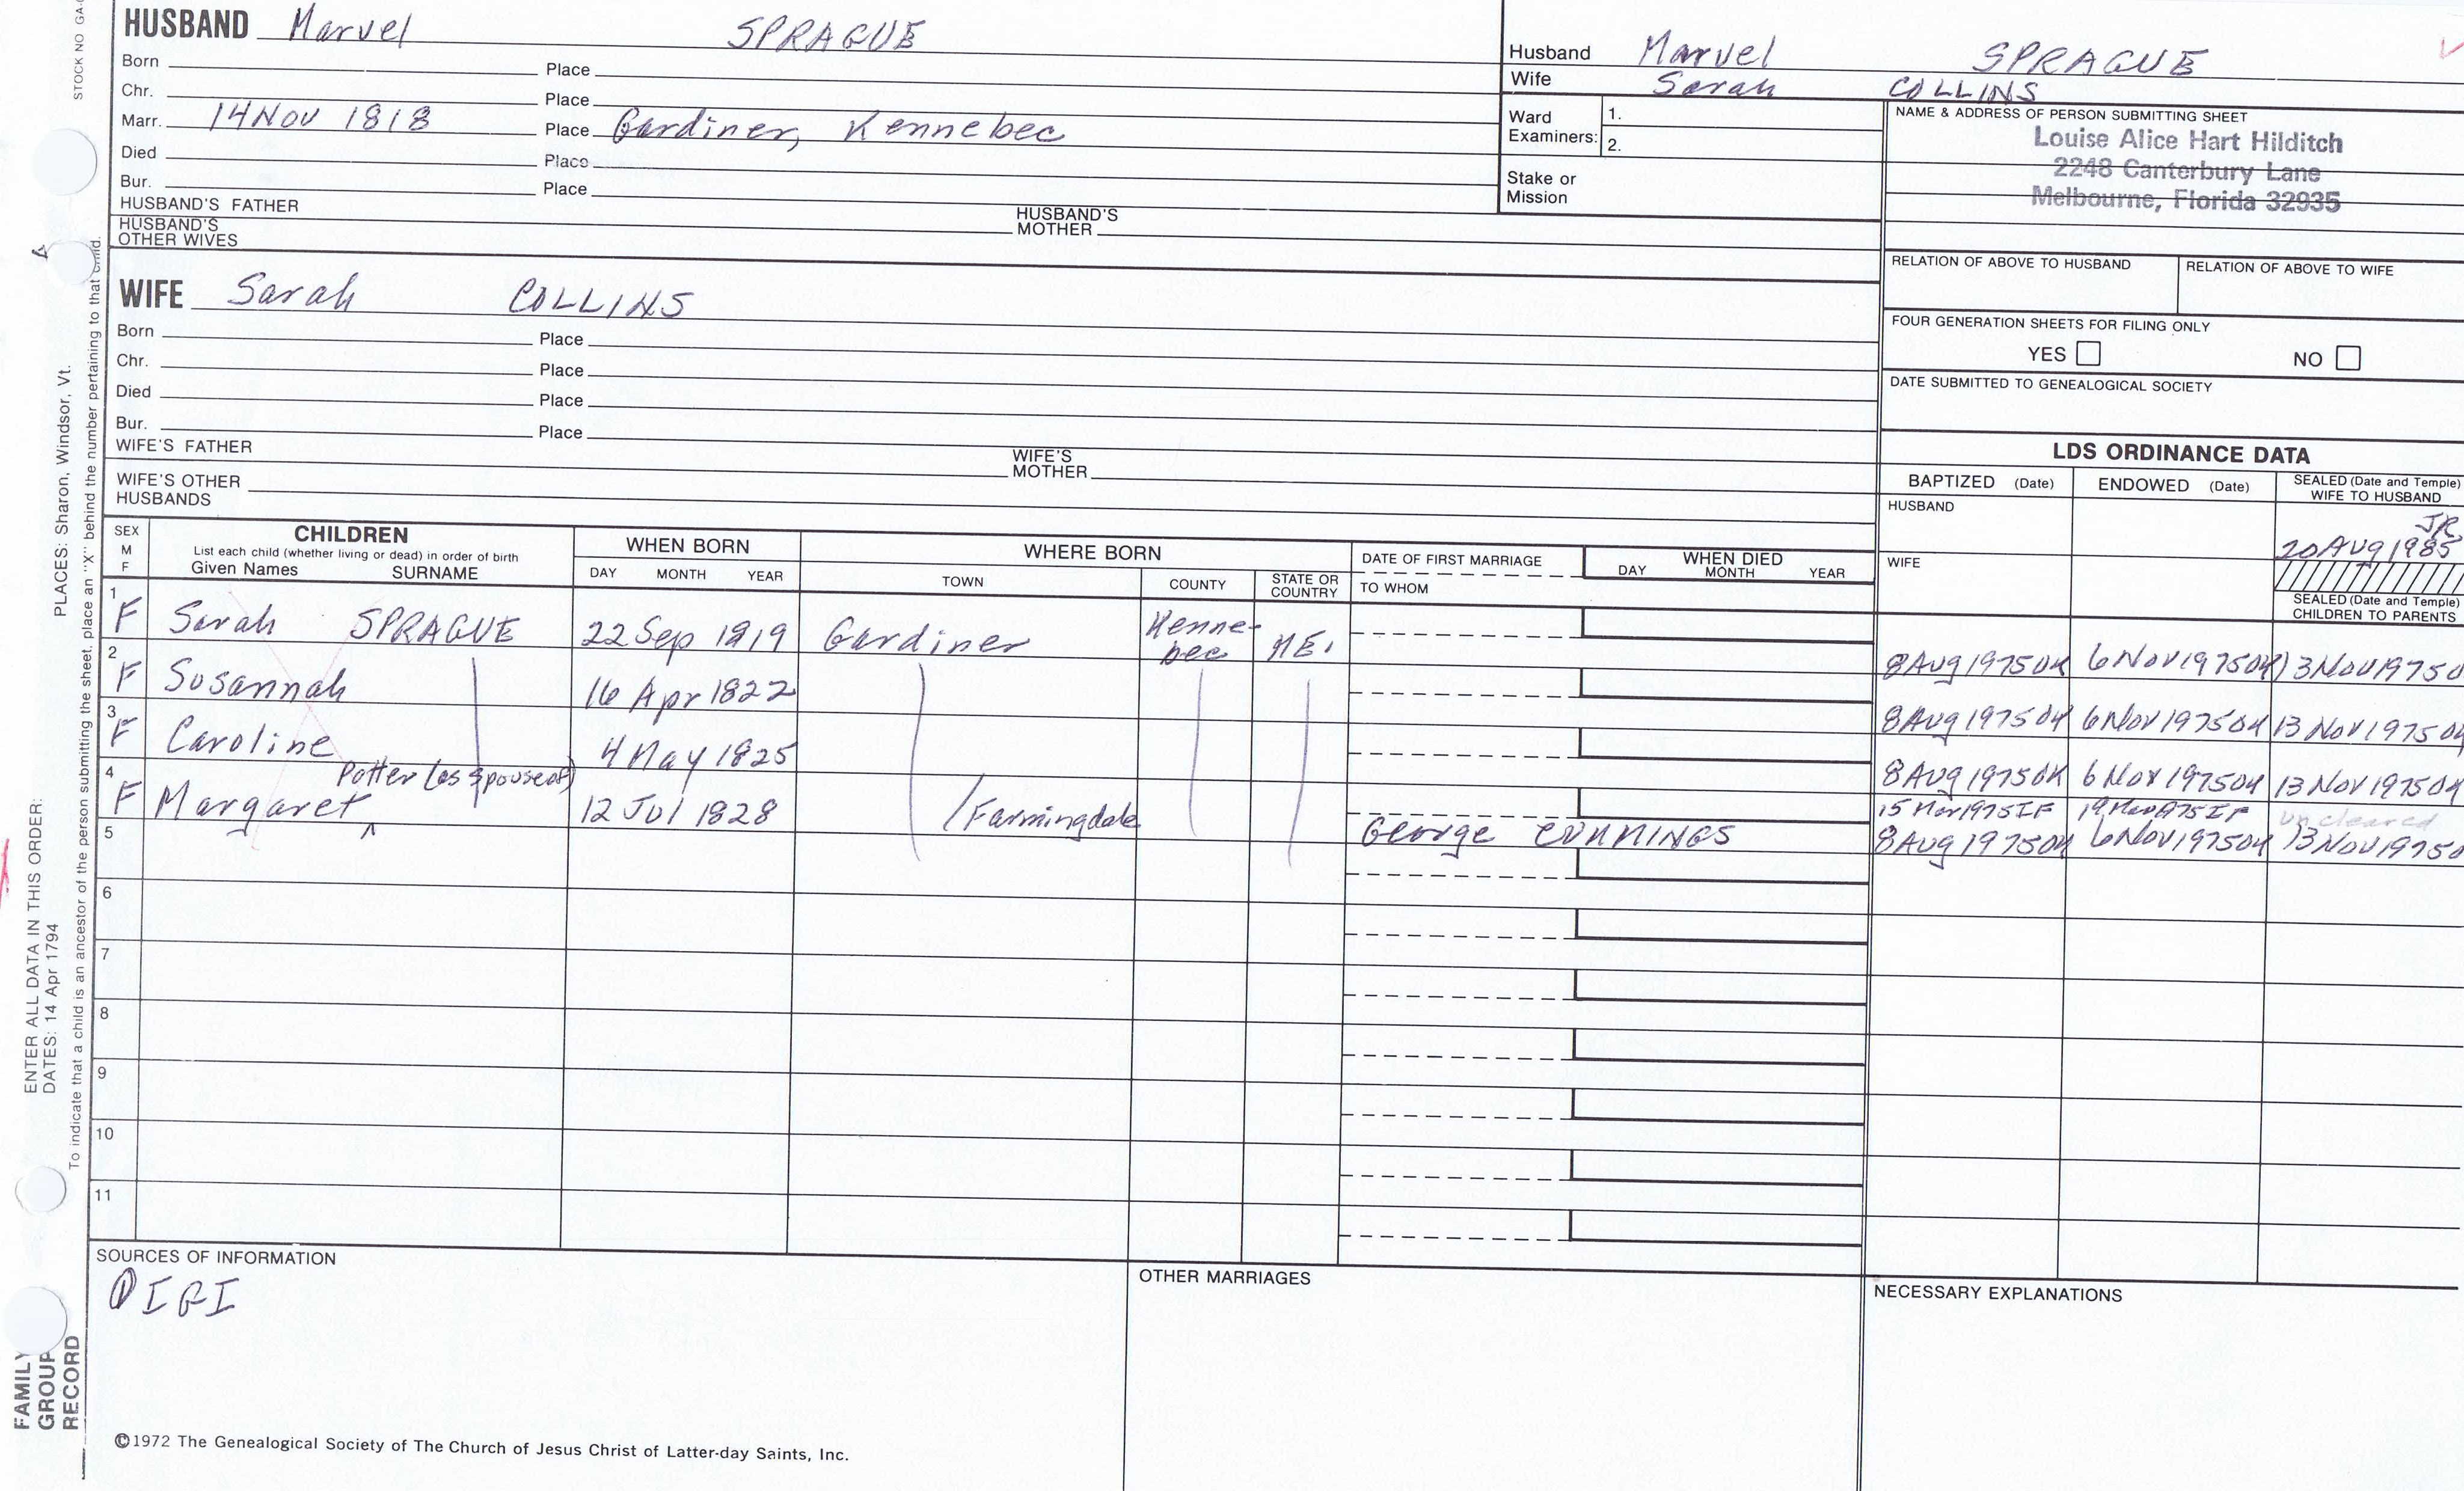 HUSBAND Marvel SPRAGUE
Born Place
Chr. Place
Marr. 14 Nov 1818 Place Gardiner, Kennebec
Died Place
Bur. Place
HUSBAND'S FATHER HUSBAND'S MOTHER
HUSBAND'S OTHER WIVES
Husband Marvel SPRAGUE
Wife Sarah COLLINS
Ward Examiners: 1.
2.
Stake or Mission
NAME & ADDRESS OF PERSON SUBMITTING SHEET
Louise Alice Hart Hilditch
2248 Canterbury Lane
Melbourne, Florida 32935
RELATION OF ABOVE TO HUSBAND RELATION OF ABOVE TO WIFE
FOUR GENERATION SHEETS FOR FILING ONLY
YES NO
DATE SUBMITTED TO GENEALOGICAL SOCIETY
WIFE Sarah COLLINS
Born Place
Chr. Place
Died Place
Bur. Place
WIFE'S FATHER WIFE'S MOTHER
WIFE'S OTHER HUSBANDS
LDS ORDINANCE DATA
BAPTIZED (Date) ENDOWED (Date) SEALED (Date and Temple) WIFE TO HUSBAND
HUSBAND JR
20 Aug 1985
WIFE
SEALED (Date and Temple)
CHILDREN TO PARENTS
SEX M F
CHILDREN
List each child (whether living or dead) in order of birth
Given Names SURNAME
WHEN BORN
DAY MONTH YEAR
WHERE BORN
TOWN COUNTY STATE OR COUNTRY
DATE OF FIRST MARRIAGE
TO WHOM
WHEN DIED
DAY MONTH YEAR
1 F Sarah SPRAGUE 22 Sep 1819 Gardiner Kenne-bec ME. 8 Aug 1975 6 Nov 1975 13 Nov 1975
2 F Susannah 16 Apr 1822 8 Aug 1975 6 Nov 1975 13 Nov 1975
3 F Caroline 4 May 1825 8 Aug 1975 6 Nov 1975 13 Nov 1975
Potter (as spouse of) 15 Mar 1975 IF 19 Mar 1975 IF uncleared
4 F Margaret 12 Jul 1828 Farmingdale George CUMMINGS 8 Aug 1975 6 Nov 1975 13 Nov 1975
5
6
7
8
9
10
11
SOURCES OF INFORMATION
IGI
OTHER MARRIAGES
NECESSARY EXPLANATIONS
©1972 The Genealogical Society of The Church of Jesus Christ of Latter-day Saints, Inc.
STOCK NO GA-
ENTER ALL DATA IN THIS ORDER:
DATES: 14 Apr 1794 PLACES: Sharon, Windsor, Vt.
To indicate that a child is an ancestor of the person submitting the sheet, place an "X" behind the number pertaining to that child.
FAMILY
GROUP
RECORD